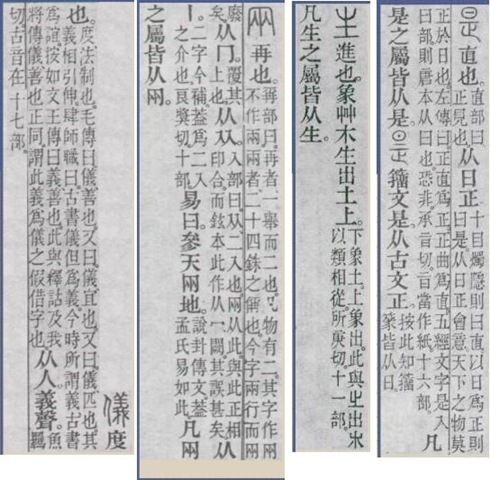 昰 直也。直部曰。正見也。从日正。十目燭隱則曰直。以日爲正則曰是。从日正會意。天下之物莫
正於日也。左傳曰。正直爲正。正曲爲直。五經文字是入日部。則唐本从日也。恐非。承旨切。旨當作紙。十六部。凡
是之屬皆从是。昰籒文是。从古文正。按此知籒篆皆从日。
生 進也。象艸木生出土上。下象土。上象出。此與㞢出米以類相從。所庚切。十一部。
凡生之屬皆从生。
㒳 再也。冓部曰。再者一舉而二也。凡物有二。其字作㒳不作兩。兩者二十四銖之偁也。今字兩行而㒳
廢矣。从冂。覆其上也。从从。入部曰。从二入也。㒳从此。與此正相印合。而鉉本此作从一闕。其誤甚矣。从
丨。二字今補。蓋爲二入之介也。良奬切。十部。易曰。參天㒳地。說卦傳文。蓋孟氏易如此。凡㒳
之屬皆从㒳。
儀 度
也。度法制也。毛傳曰。儀善也。又曰。儀宜也。又曰。儀匹也。其義相引伸。肆師職曰。古書儀但爲義。今時所謂義。古書
爲誼。按如文王傳曰。義善也。此與釋詁及我將傳儀善也正同。謂此義爲儀之假借字也。从人義聲。魚羈
切。古音在十七部。